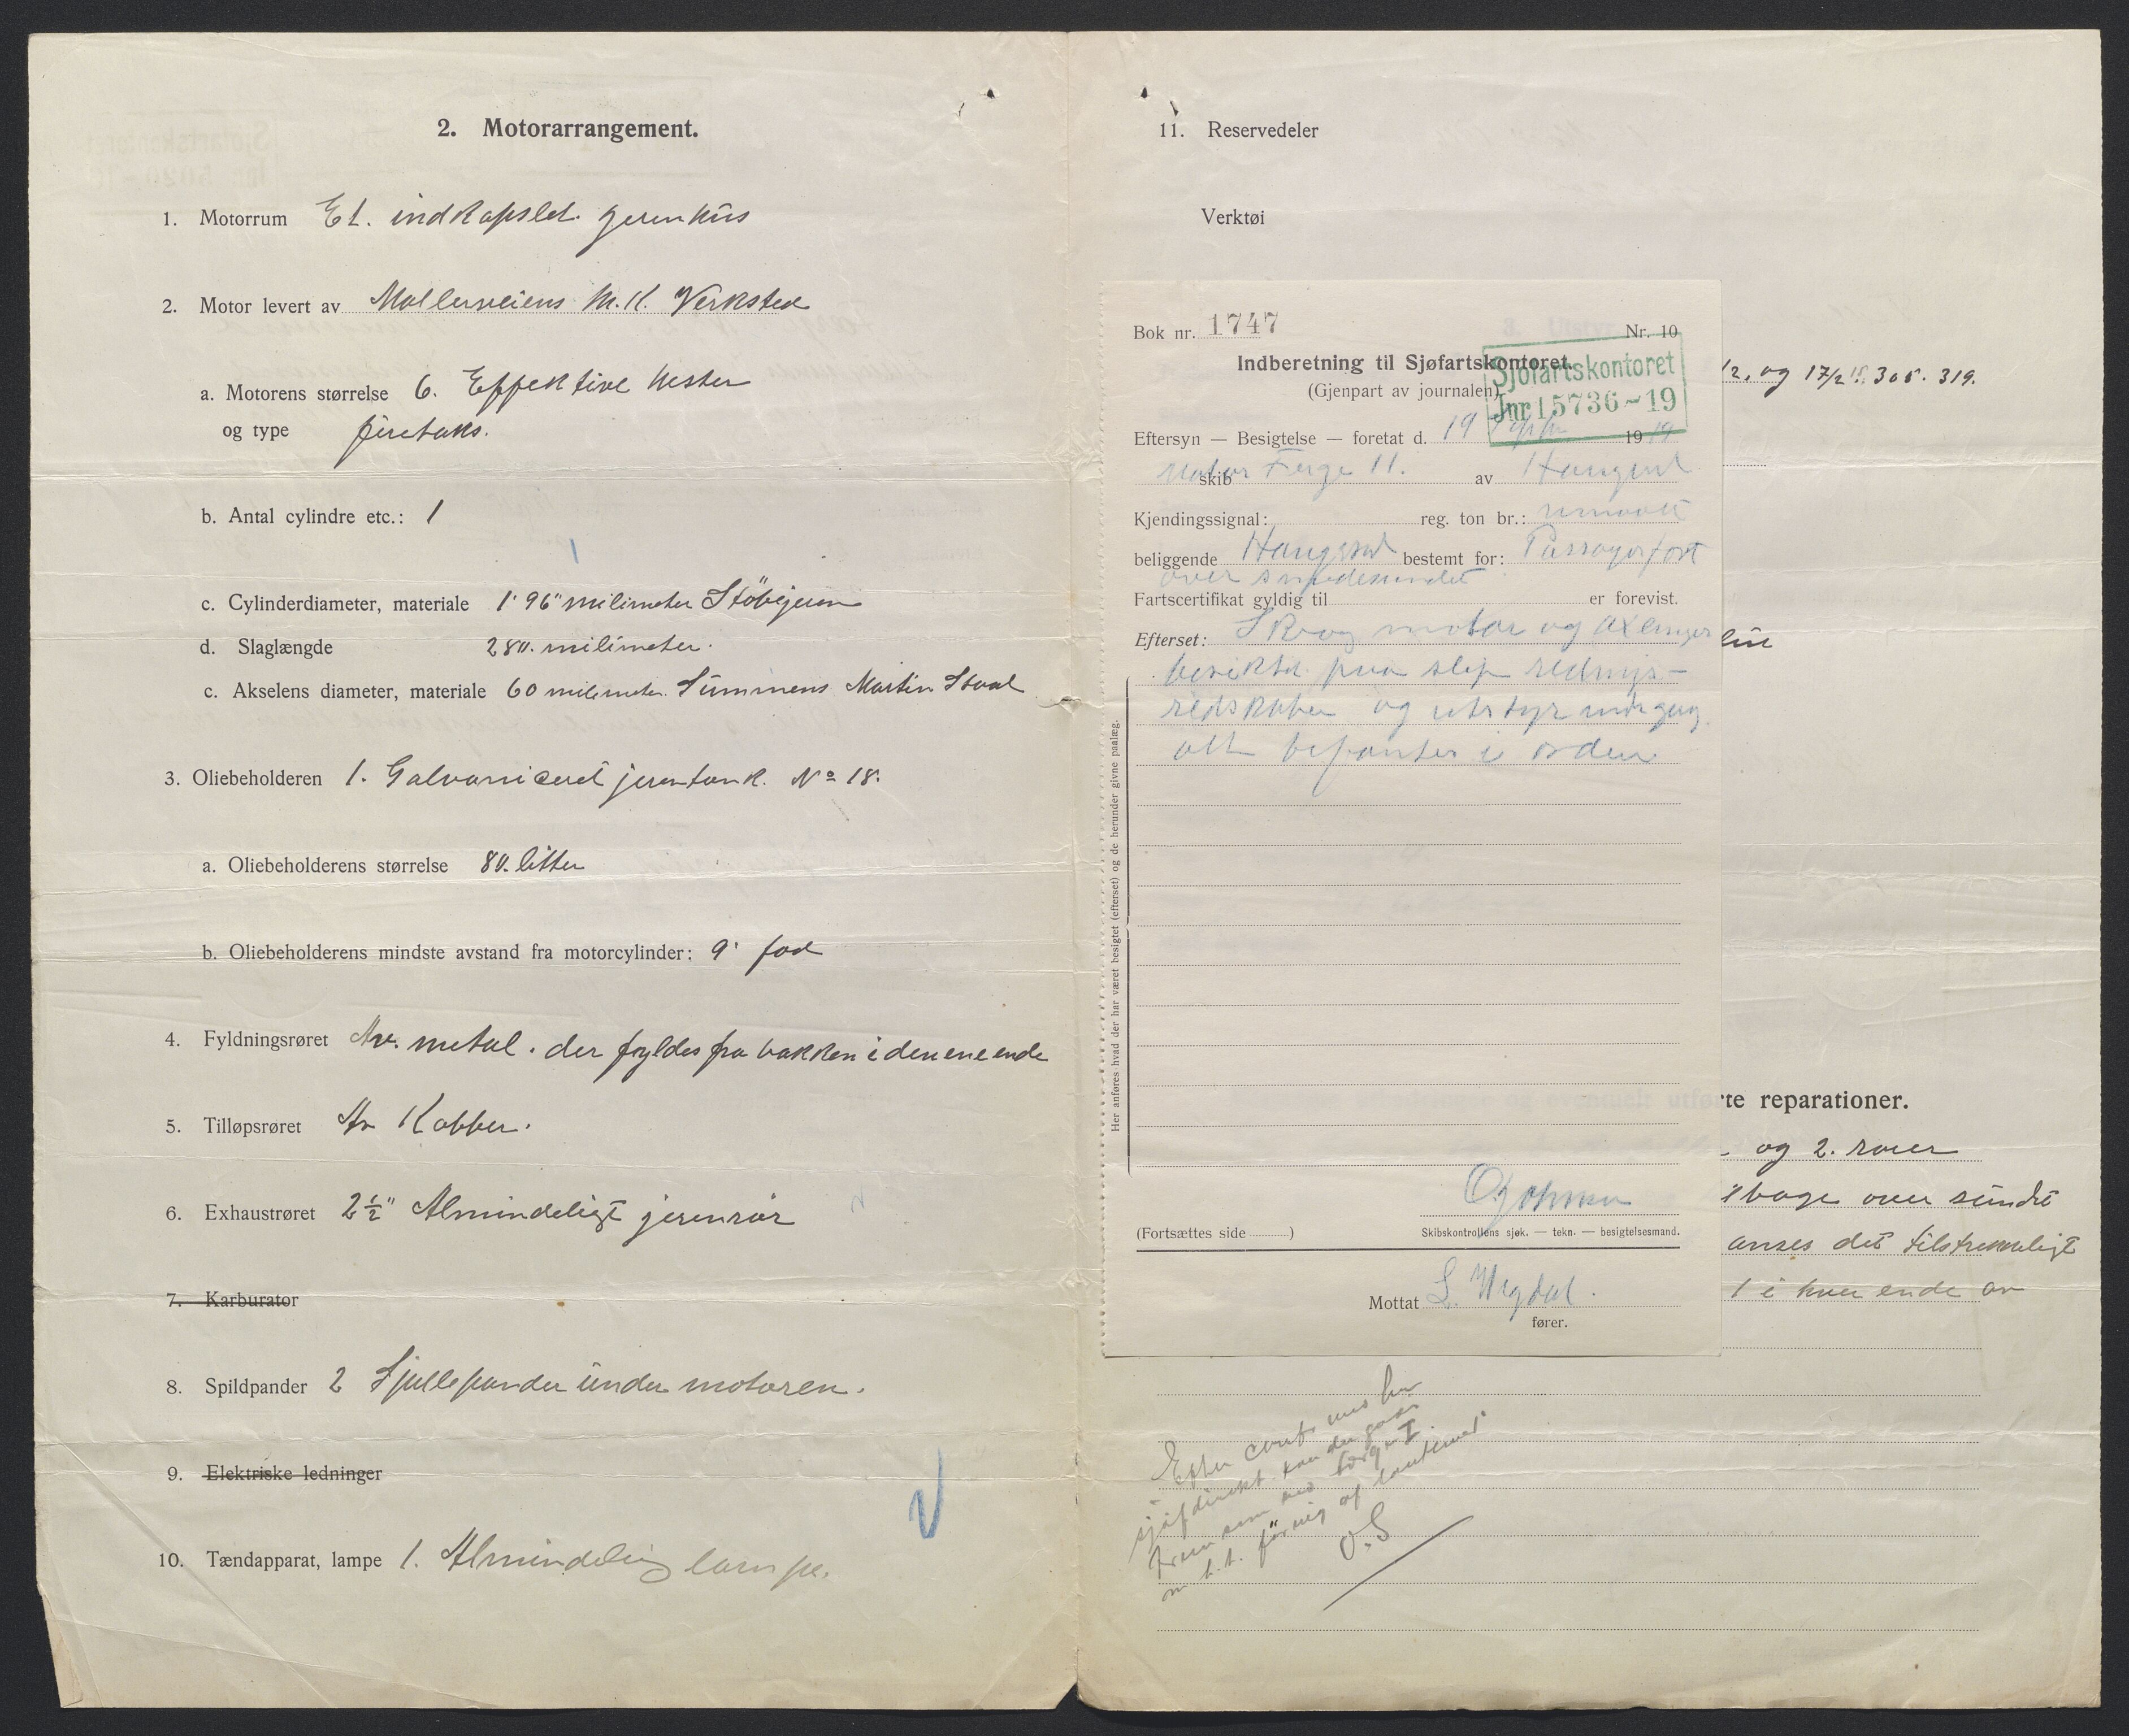 2. Motorarrangement.
1. Motorrum Et. indkapslet jernhus
2. Motor levert av Møllerveiens M. K. Verksted
a. Motorens størrelse 6. Effektive hester
og type firetaks.
b. Antal cylindre etc.: 1
c. Cylinderdiameter, materiale 1' 96" milimeter Stöbejern
d. Slaglængde 280. milimeter.
c. Akselens diameter, materiale 60 milimeter. Simmens Martin Staal
3. Oliebeholderen 1. Galvaniceret jerntank. No 18.
a. Oliebeholderens størrelse 80. litter
b. Oliebeholderens mindste avstand fra motorcylinder: 9' fod
4. Fyldningsrøret Av. metal. der fyldes fra bakken i den ene ende
5. Tilløpsrøret Av Kobber.
6. Exhaustrøret 2½" Almindeligt jernrör
7. Karburator
8. Spildpander 2 Spillepander under motoren.
9. Elektriske ledninger
10. Tændapparat, lampe 1. Almindelig lampe.
11. Reservedeler
Verktøi
Bok nr. 1747 Nr. 10
Indberetning til Sjøfartskontoret.
(Gjenpart av journalen)
Sjøfartskontoret
Jnr 15736-19
Eftersyn — Besigtelse — foretat d. 19 1919
skib Motor Ferge II. av Haugesd
Kjendingssignal: reg. ton br.: umaalt
beliggende Haugesd bestemt for: Passagerfart
over smedesundet
Fartscertifikat gyldig til er forevist.
Efterset: Skrog motor og
besiktet paa slip rednings-
redskaber og utstyr
alt befantes i orden
Her anføres hvad der har været besigtet (efterset) og de herunder givne paalæg.
(Fortsættes side )
Skibskontrollens sjøk. — tekn. — besigtelsesmand.
Mottat
fører.
/2. og 17/2 15. 305. 319.
rte reparationer.
og 2. roer
over sundet
anses det tilstrekkeligt
1 i hver ende av
Efter conf. med
kan
som med færge I
O.S